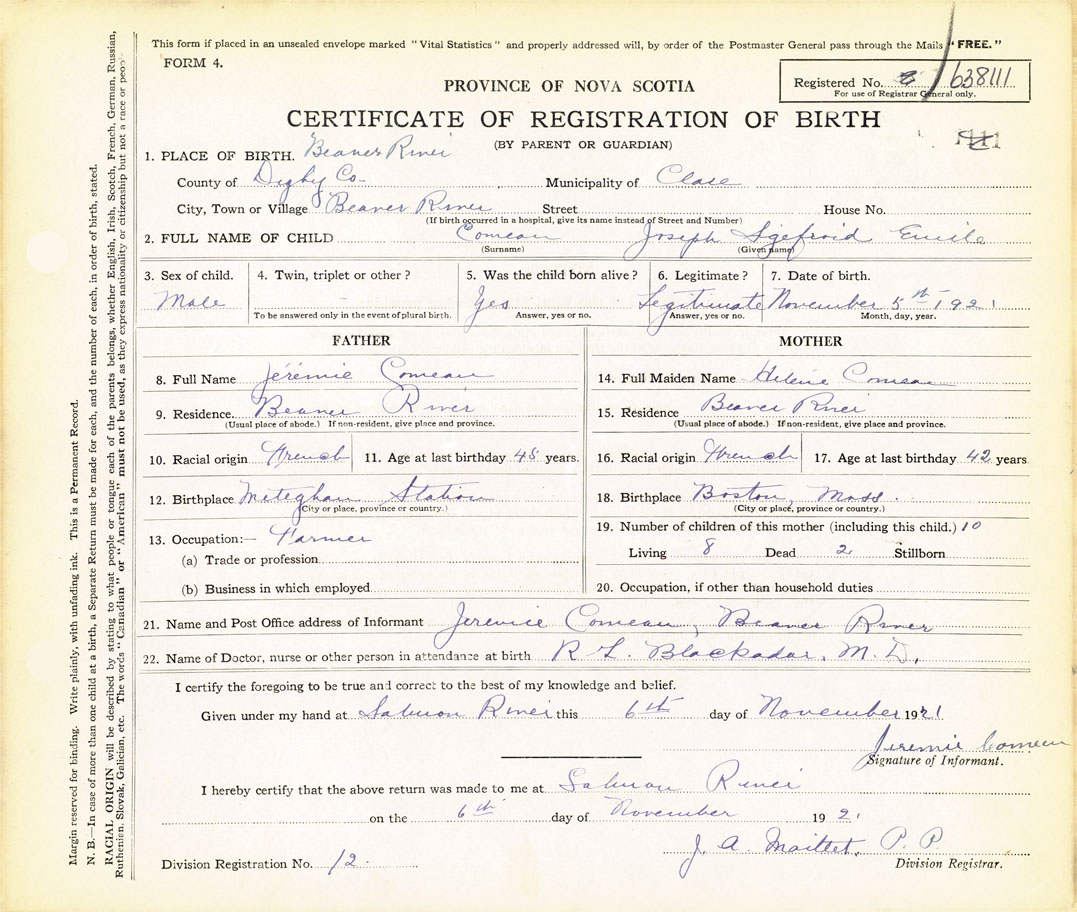 This form if placed in an unsealed envelope marked "Vital Statistics" and properly addressed will, by order of the Postmaster General pass through the Mails "FREE."
FORM 4.
Registered No. 638111
For use of Registrar General only.
PROVINCE OF NOVA SCOTIA
CERTIFICATE OF REGISTRATION OF BIRTH
(BY PARENT OR GUARDIAN)
1. PLACE OF BIRTH. Beaver River
County of Digby Co. Municipality of Clare
City, Town or Village Beaver River Street House No.
(If birth occurred in a hospital, give its name instead of Street and Number)
2. FULL NAME OF CHILD Comeau Joseph Sigefroid Emile
(Surname) (Given name)
3. Sex of child. 4. Twin, triplet or other? 5. Was the child born alive? 6. Legitimate? 7. Date of birth.
Male Yes Legitimate November 5th 1921
To be answered only in the event of plural birth. Answer, yes or no. Answer, yes or no. Month, day, year.
FATHER
8. Full Name Jérémie Comeau
9. Residence. Beaver River
(Usual place of abode.) If non-resident, give place and province.
10. Racial origin French 11. Age at last birthday 45 years.
12. Birthplace Meteghan Station
(City or place, province or country.)
13. Occupation:— Farmer
(a) Trade or profession
(b) Business in which employed
MOTHER
14. Full Maiden Name Helène Comeau
15. Residence Beaver River
(Usual place of abode.) If non-resident, give place and province.
16. Racial origin French 17. Age at last birthday 42 years
18. Birthplace Boston, Mass.
(City or place, province or country.)
19. Number of children of this mother (including this child.) 10
Living 8 Dead 2 Stillborn
20. Occupation, if other than household duties
21. Name and Post Office address of Informant Jeremie Comeau, Beaver River
22. Name of Doctor, nurse or other person in attendance at birth R L. Blackadar, M. D.
I certify the foregoing to be true and correct to the best of my knowledge and belief.
Given under my hand at Salmon River this 6th day of November 1921
Jeremie Comeau
Signature of Informant.
I hereby certify that the above return was made to me at Salmon River
on the 6th day of November 1921
J. A. Maillet, P. P
Division Registrar.
Division Registration No. 12.
Margin reserved for binding. Write plainly, with unfading ink. This is a Permanent Record.
N. B.—In case of more than one child at a birth, a Separate Return must be made for each, and the number of each, in order of birth, stated.
RACIAL ORIGIN will be described by stating to what people or tongue each of the parents belongs, whether English, Irish, Scotch, French, German, Russian,
Ruthenian, Slovak, Galician, etc. The words "Canadian" or "American" must not be used, as they express nationality or citizenship but not a race or people